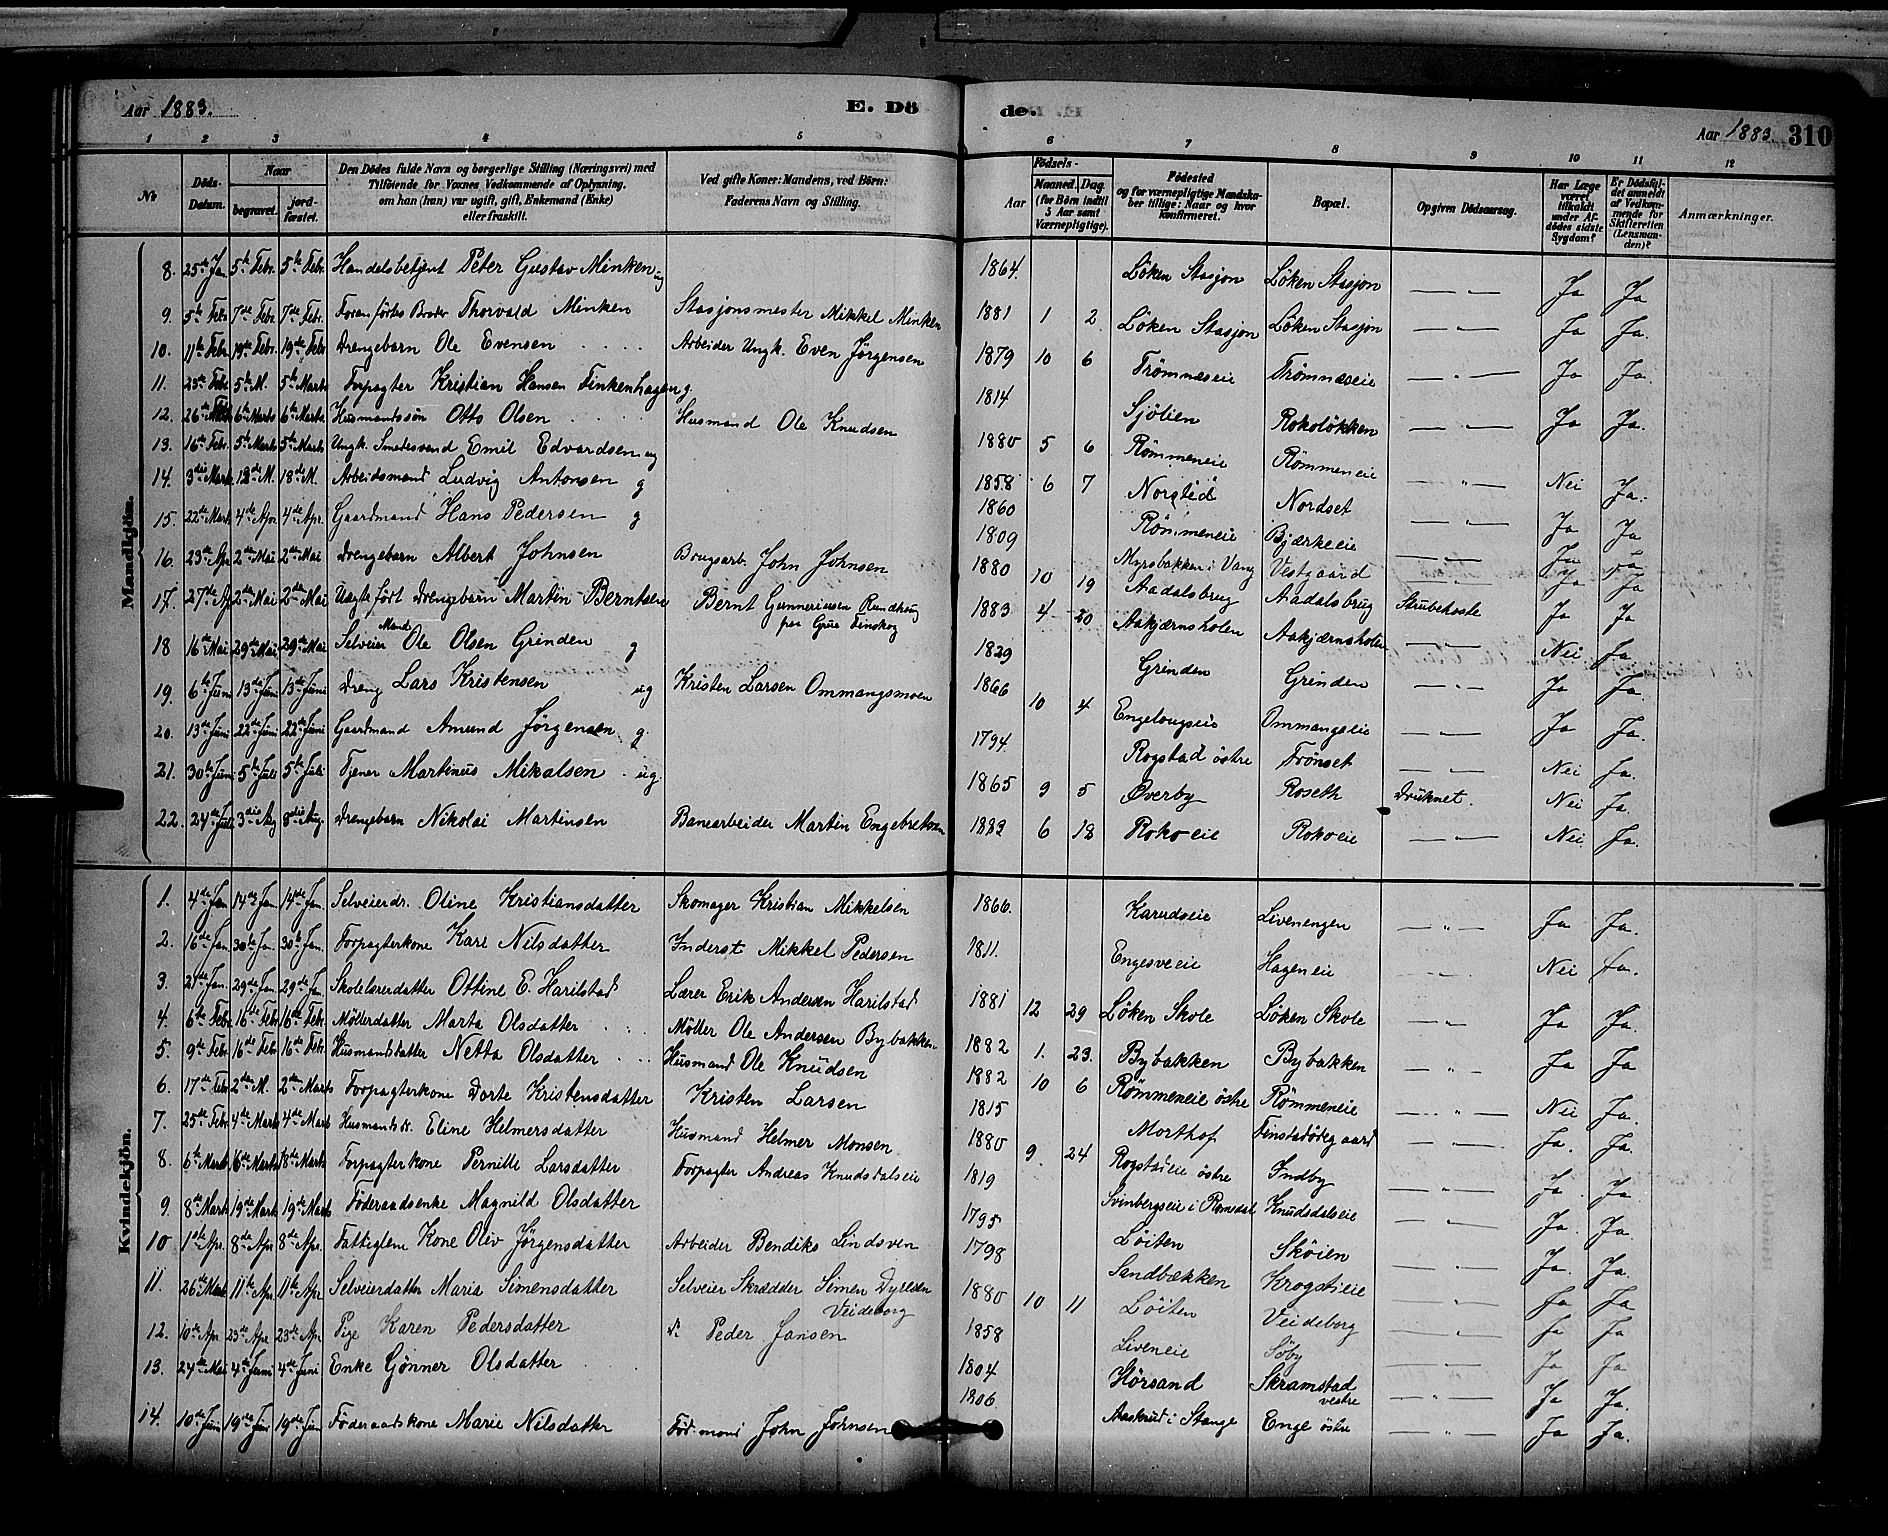 Aar 1883. E. Dö
de. Aar 1883. 310
1 2 3 4 5 6 7 8 9 10 11 12
No
Döds-Datum.
Naar
begravet. jordfæstet.
Den Dödes fulde Navn og borgerlige Stilling (Næringsvei) med
Tilföiende for Voxnes Vedkommende af Oplysning,
om han (hun) var ugift, gift, Enkemand (Enke)
eller fraskilt.
Ved gifte Koner: Mandens, ved Börn:
Faderens Navn og Stilling.
Födsels-
Aar Maaned. Dag.
(for Börn indtil
5 Aar samt
Værnepligtige).
Födested
og for værnepligtige Mandskaber tillige: Naar og hvor
konfirmeret.
Bopæl.
Opgiven Dödsaarsag.
Har Læge været tilkaldt under Afdödes sidste Sygdom?
Er Dödsfaldet anmeldt af Vedkommende for Skifteretten (Lensmanden)?
Anmærkninger.
Mandkjön.
8. 25de Jan 5te Febr. 5te Febr. Handelsbetjent Peter Gustav Minken ug 1864. Löken Stasjon Löken Stasjon — — Ja Ja
9. 5te Febr 7de Febr. 7de Febr. Foranførtes Broder Thorvald Minken Stasjonsmester Mikkel Minken 1881 1 2 Löken Stasjon Löken Stasjon — " — Ja Ja.
10. 11te Febr. 19de Febr. 19de Febr Drengebarn Ole Evensen Arbeider Ungk. Even Jørgensen 1879 10 6 Trömnæseie Trömnæseie — " — Ja Ja.
11. 23de Febr 5te M. 5te Marts Forpagter Kristian Hansen Finkenhagen g. 1814 Sjölien Rokoløkken — " — Ja Ja.
12. 26de Febr. 6te Marts 6te Marts. Husmandssön Otto Olsen Husmand Ole Knudsen 1880 5 6 Römmeneie Römmeneie — " — Nei Ja.
13. 16de Febr. 5te Marts 5te Marts Ungk. Smedesvend Emil Edvardsen ug 1858 6 7 Nordset — " — Ja Ja
14. 3die Marts 12te M. 18de M. Arbeidsmand Ludvig Antonsen g 1860 Römmeneie Bjærkeeie — Ja Ja
15. 22de Marts 4de Apr. 4de Apr. Gaardmand Hans Pedersen g 1809 Myrsbakken i Vang Vestgaard — " — Ja Ja
16. 23de Apr 2den Mai 2den Mai Drengebarn Albert Johnsen Brugsarb. John Johnsen 1880 10 19 Aadalsbrug Aadalsbrug Strubehoste Ja Ja
17. 27de Ap 2den Mai 2den Mai Uægte født Drengebarn Martin Berntsen Bernt Gunneriusen Rundhaug
paa Grue Finskog 1883 4 20 Aakjærnsholen Aakjærnsholen — " — Nei Ja
18 16de Mai 29de Mai 29de Mai Selveier Mand Ole Olsen Grinden g 1829 Grinden Grinden — " — Ja Ja.
19. 6te Juni 13de Juni 13de Juni Dreng Lars Kristensen ug Kristen Larsen Ommangsmoen 1866 10 4 Engelaugseie Ommangseie — " — Ja Ja.
20. 13de Juni 22de Juni 22de Juni Gaardmand Amund Jørgensen g. 1794. Rogstad östre Frönset — " — Nei Ja.
21. 30te Juni 5te Juli 5te Juli Tjener Martinus Mikalsen ug. 1865 9 5 Øverby Roseth Druknet. Nei Ja.
22. 24de Juli 3die Aug 3die Aug. Drengebarn Nikolai Martinsen Banearbeider Martin Engebretsen 1883 6 18 Rokoeie Rokoeie — " — Nei Ja.
Kvindekjön.
1. 4de Jan 14de Jan. 14de Jan. Selveierdr. Oline Kristiansdatter Skomager Kristian Mikkelsen 1866. Karudseie Livenengen — " — Ja Ja.
2. 16de Jan. 30te Jan. 30te Jan. Forpagterkone Kari Nilsdatter Inderst Mikkel Pedersen 1811. Engesveeie Hageneie — " — Nei Ja.
3. 21de Jan. 29de Jan. 29de Jan Skolelærerdatter Ottine E. Harilstad Lærer Erik Andersen Harilstad 1881 12 29 Löken Skole Löken Skole — " — Ja Ja.
4. 6te Febr. 16de Febr 16de Febr. Möllerdatter Marta Olsdatter Möller Ole Andersen Bybakken 1882 1. 23. Bybakken Bybakken — " — Ja Ja
5. 9de Febr 16de Febr 16de Febr. Husmandsdatter Netta Olsdatter Husmand Ole Knudsen 1882 10 6 Römmeneie östre Römmeneie — " — Nei Ja.
6. 17de Febr 2den M. 2den Marts Forpagterkone Dorte Kristensdatter Kristen Larsen 1815 Morthof Finstadödegaard — " — Ja. Ja.
7. 25de Febr 4de Marts 4de Marts Husmandsdr. Eline Helmersdatter Husmand Helmer Monsen 1880 9. 24 Rogstadeie östre Indby — " — Ja. Ja.
8. 6te Marts 16de Marts 18de Marts Forpagterkone Pernille Larsdatter Forpagter Andreas Knudsdalseie 1819 Svinbergseie i Romedal Knudsdalseie — " — Ja. Ja.
9. 8de Marts 19de Marts 19de Marts Föderaadsenke Magnild Olsdatter 1795 Löiten Sköien — " — Ja. Ja.
10 1ste Apr. 8de Apr 8de Apr. Fattiglem Kone Oliv Jørgensdatter Arbeider Bendiks Lindsven 1798 Sandbækken Krogstieie — " — Ja Ja
11. 26de Marts 11te Apr. 11te Apr Selveierdatter Maria Simensdatter Selveier Skrædder Simen Dylliden
Veideborg 1880 10 11 Löiten Veideborg — " — Ja Ja
12. 10de Apr. 23de Apr 23de Apr. Pige Karen Pedersdatter Peder Jansen 1858 Liveneie Söby — " — Ja Ja
13. 24de Mai 4de Juni 4de Juni Enke Gönner Olsdatter 1804 Hörsand Skramstad
vestre — " — Ja Ja.
14. 10de Juni 19de Jun 19de Jun Föderaadskone Marie Nilsdatter Föd. mand John Johnsen 1806 Aaskrud i Stange Enge östre — " — Ja Ja.